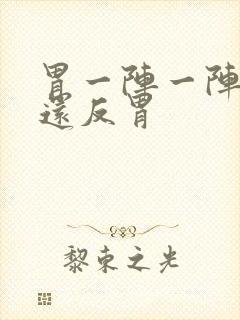 胃一陣一陣
還反胃
黎束之光